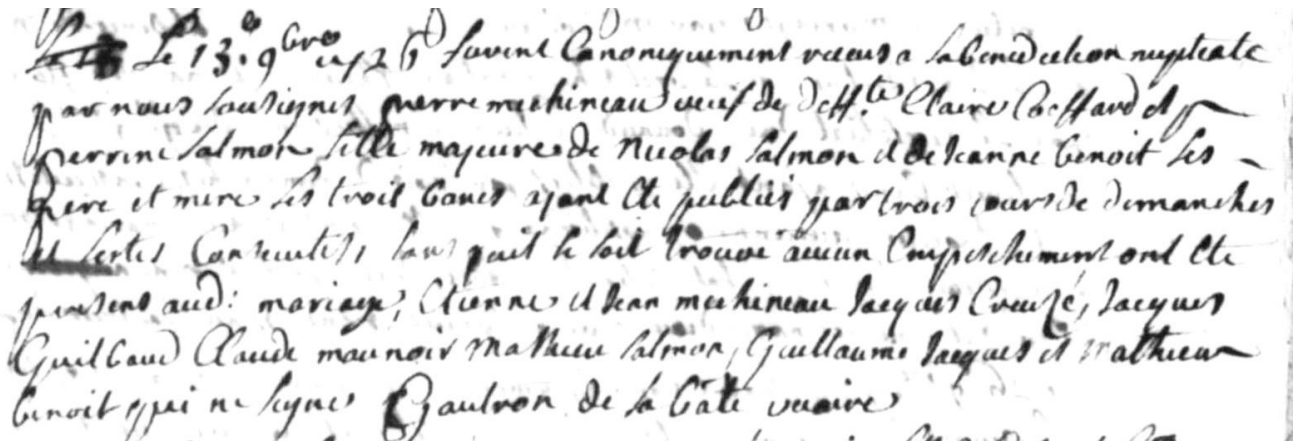 Le 13e 9bre 1726 furent Canoniquement receus a la benediction nuptiale
par nous sousignes pierre mechineau veuf de deffte Claire Coeffard et
perrine Salmon fille majeure de Nicolas Salmon et de Jeanne benoit ses
pere et mere les trois bancs ayant ete publiés par trois jours de dimanches
et festes Consecutifs sans quil se soit trouvé aucun Empeschement ont ete
presens aud: mariage, Etienne et Jean mechineau Jacques Creuzé, Jacques
Guilbaud Claude maunoir Mathieu Salmon, Guillaume Jacques et Mathieu
benoit qui ne signe Gaultron de la Bâte vicaire